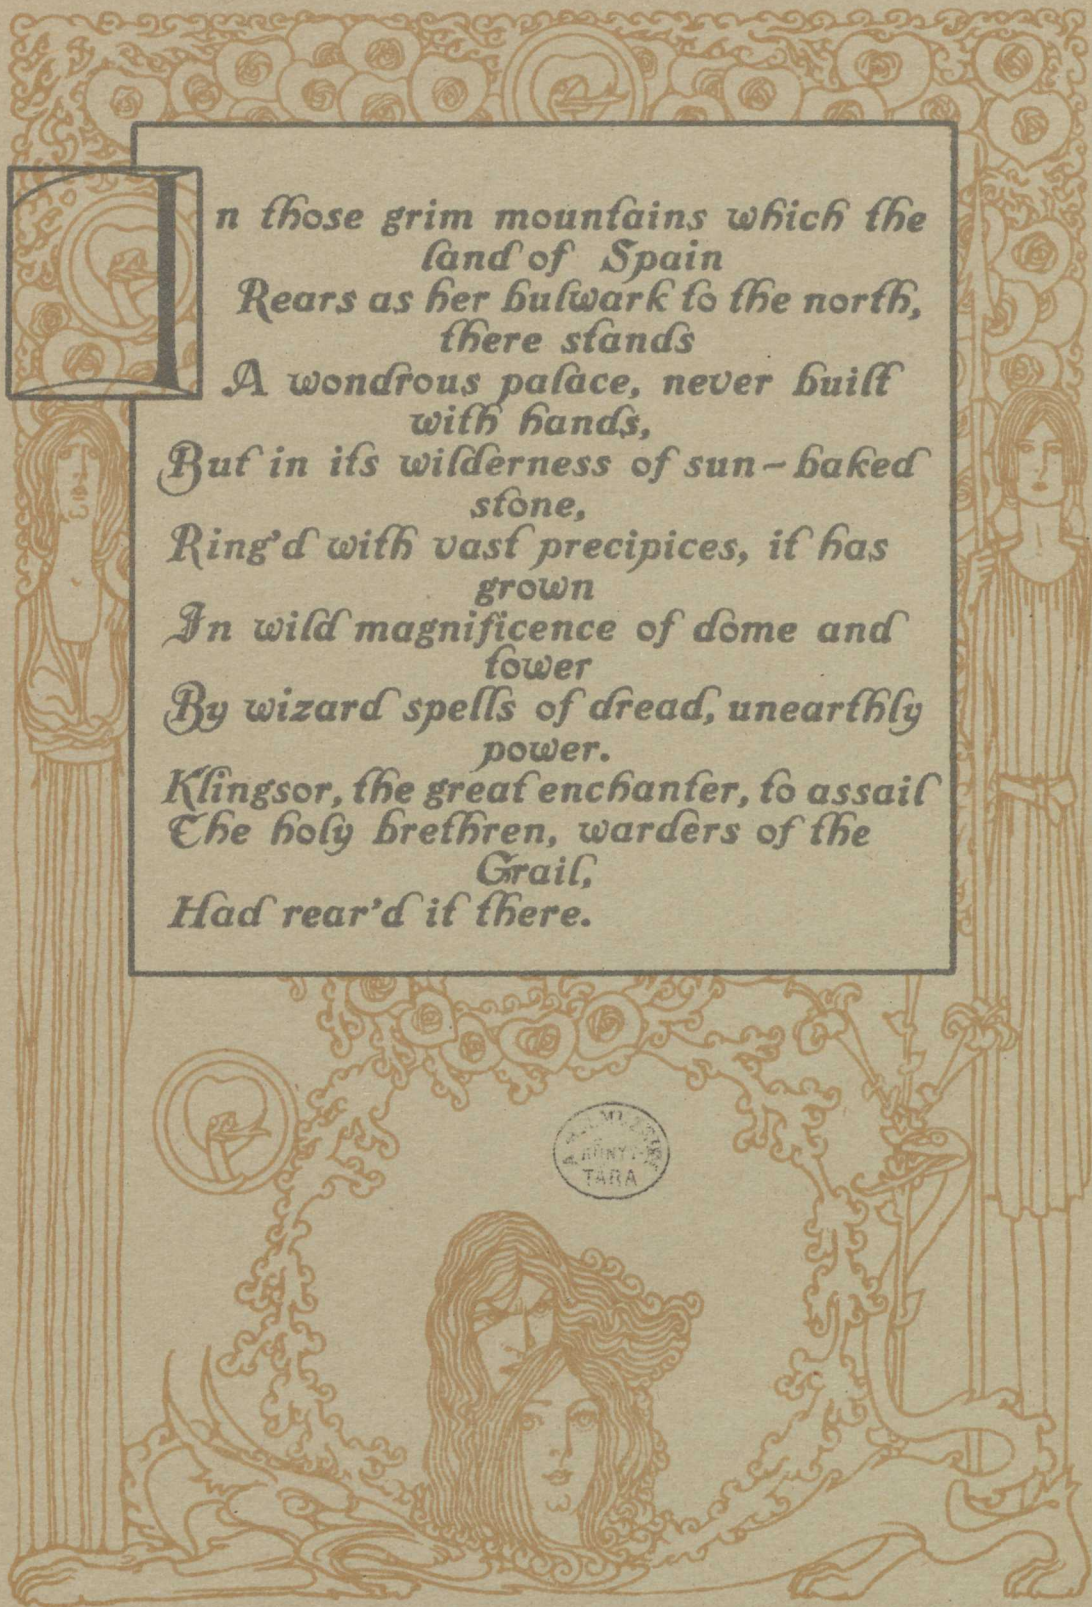 In those grim mountains which the
land of Spain
Rears as her bulwark to the north,
there stands
A wondrous palace, never built
with hands,
But in its wilderness of sun-baked
stone,
Ring'd with vast precipices, it has
grown
In wild magnificence of dome and
tower
By wizard spells of dread, unearthly
power.
Klingsor, the great enchanter, to assail
The holy brethren, warders of the
Grail,
Had rear'd it there.
TÁRA